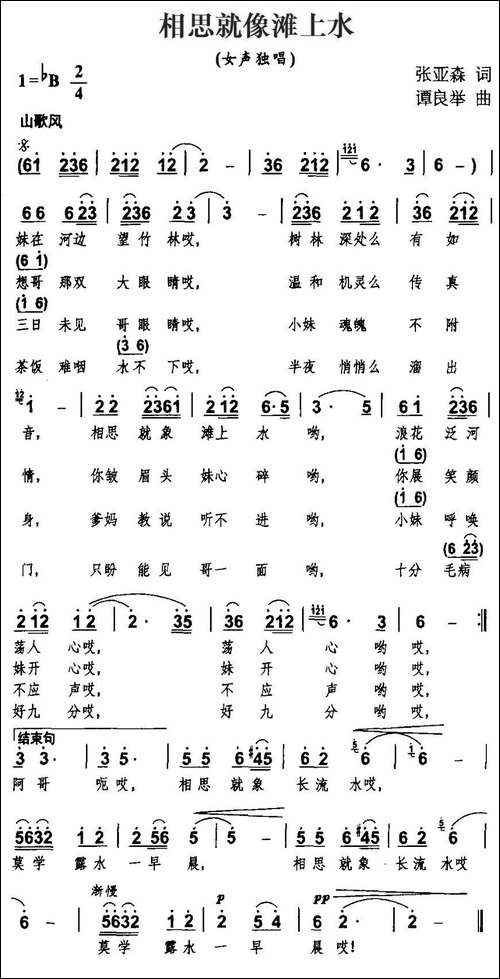 相思就像滩上水
(女声独唱)
1=♭B 2/4
张亚森 词
谭良举 曲
山歌风
(61 236 | 212 12 | 2 - | 36 212 | 6· 3 | 6 - )
66 623 | 236 23 | 3 - | 236 212 | 36 212
妹在 河边 望竹 林哎， 树林 深处么 有如
(6 1)
想哥 那双 大眼 睛哎， 温和 机灵么 传真
(1 6)
三日 未见 哥眼 睛哎， 小妹 魂魄 不附
(3 6)
茶饭 难咽 水不 下哎， 半夜 悄悄么 溜出
1 - | 22 2361 | 212 6·5 | 3· 5 | 61 236
音， 相思 就象 滩上 水 哟， 浪花 泛河
(1 6)
情， 你皱 眉头 妹心 碎 哟， 你展 笑颜
(1 6)
身， 爹妈 教说 听不 进 哟， 小妹 呼唤
(6 23)
门， 只盼 能见 哥一 面 哟， 十分 毛病
212 12 | 2· 35 | 236 212 | 6· 3 | 6 - :||
荡人 心哎， 荡人 心 哟 哎，
妹开 心哎， 妹开 心 哟 哎，
不应 声哎， 不应 声 哟 哎，
好九 分哎， 好九 分 哟 哎，
结束句
3 3· | 3 5· | 55 6#45 | 62 6 | 6 -
阿哥 呃哎， 相思 就象 长流 水哎，
5632 12 | 2 56 5 | 5 - | 55 6#45 | 62 6
莫学 露水 一早 晨， 相思 就象 长流 水哎
渐慢 p pp
6 - | 5632 12 | 2 2 | 5 4 | 2 - | 2 - ||
莫学 露水 一早 晨哎!